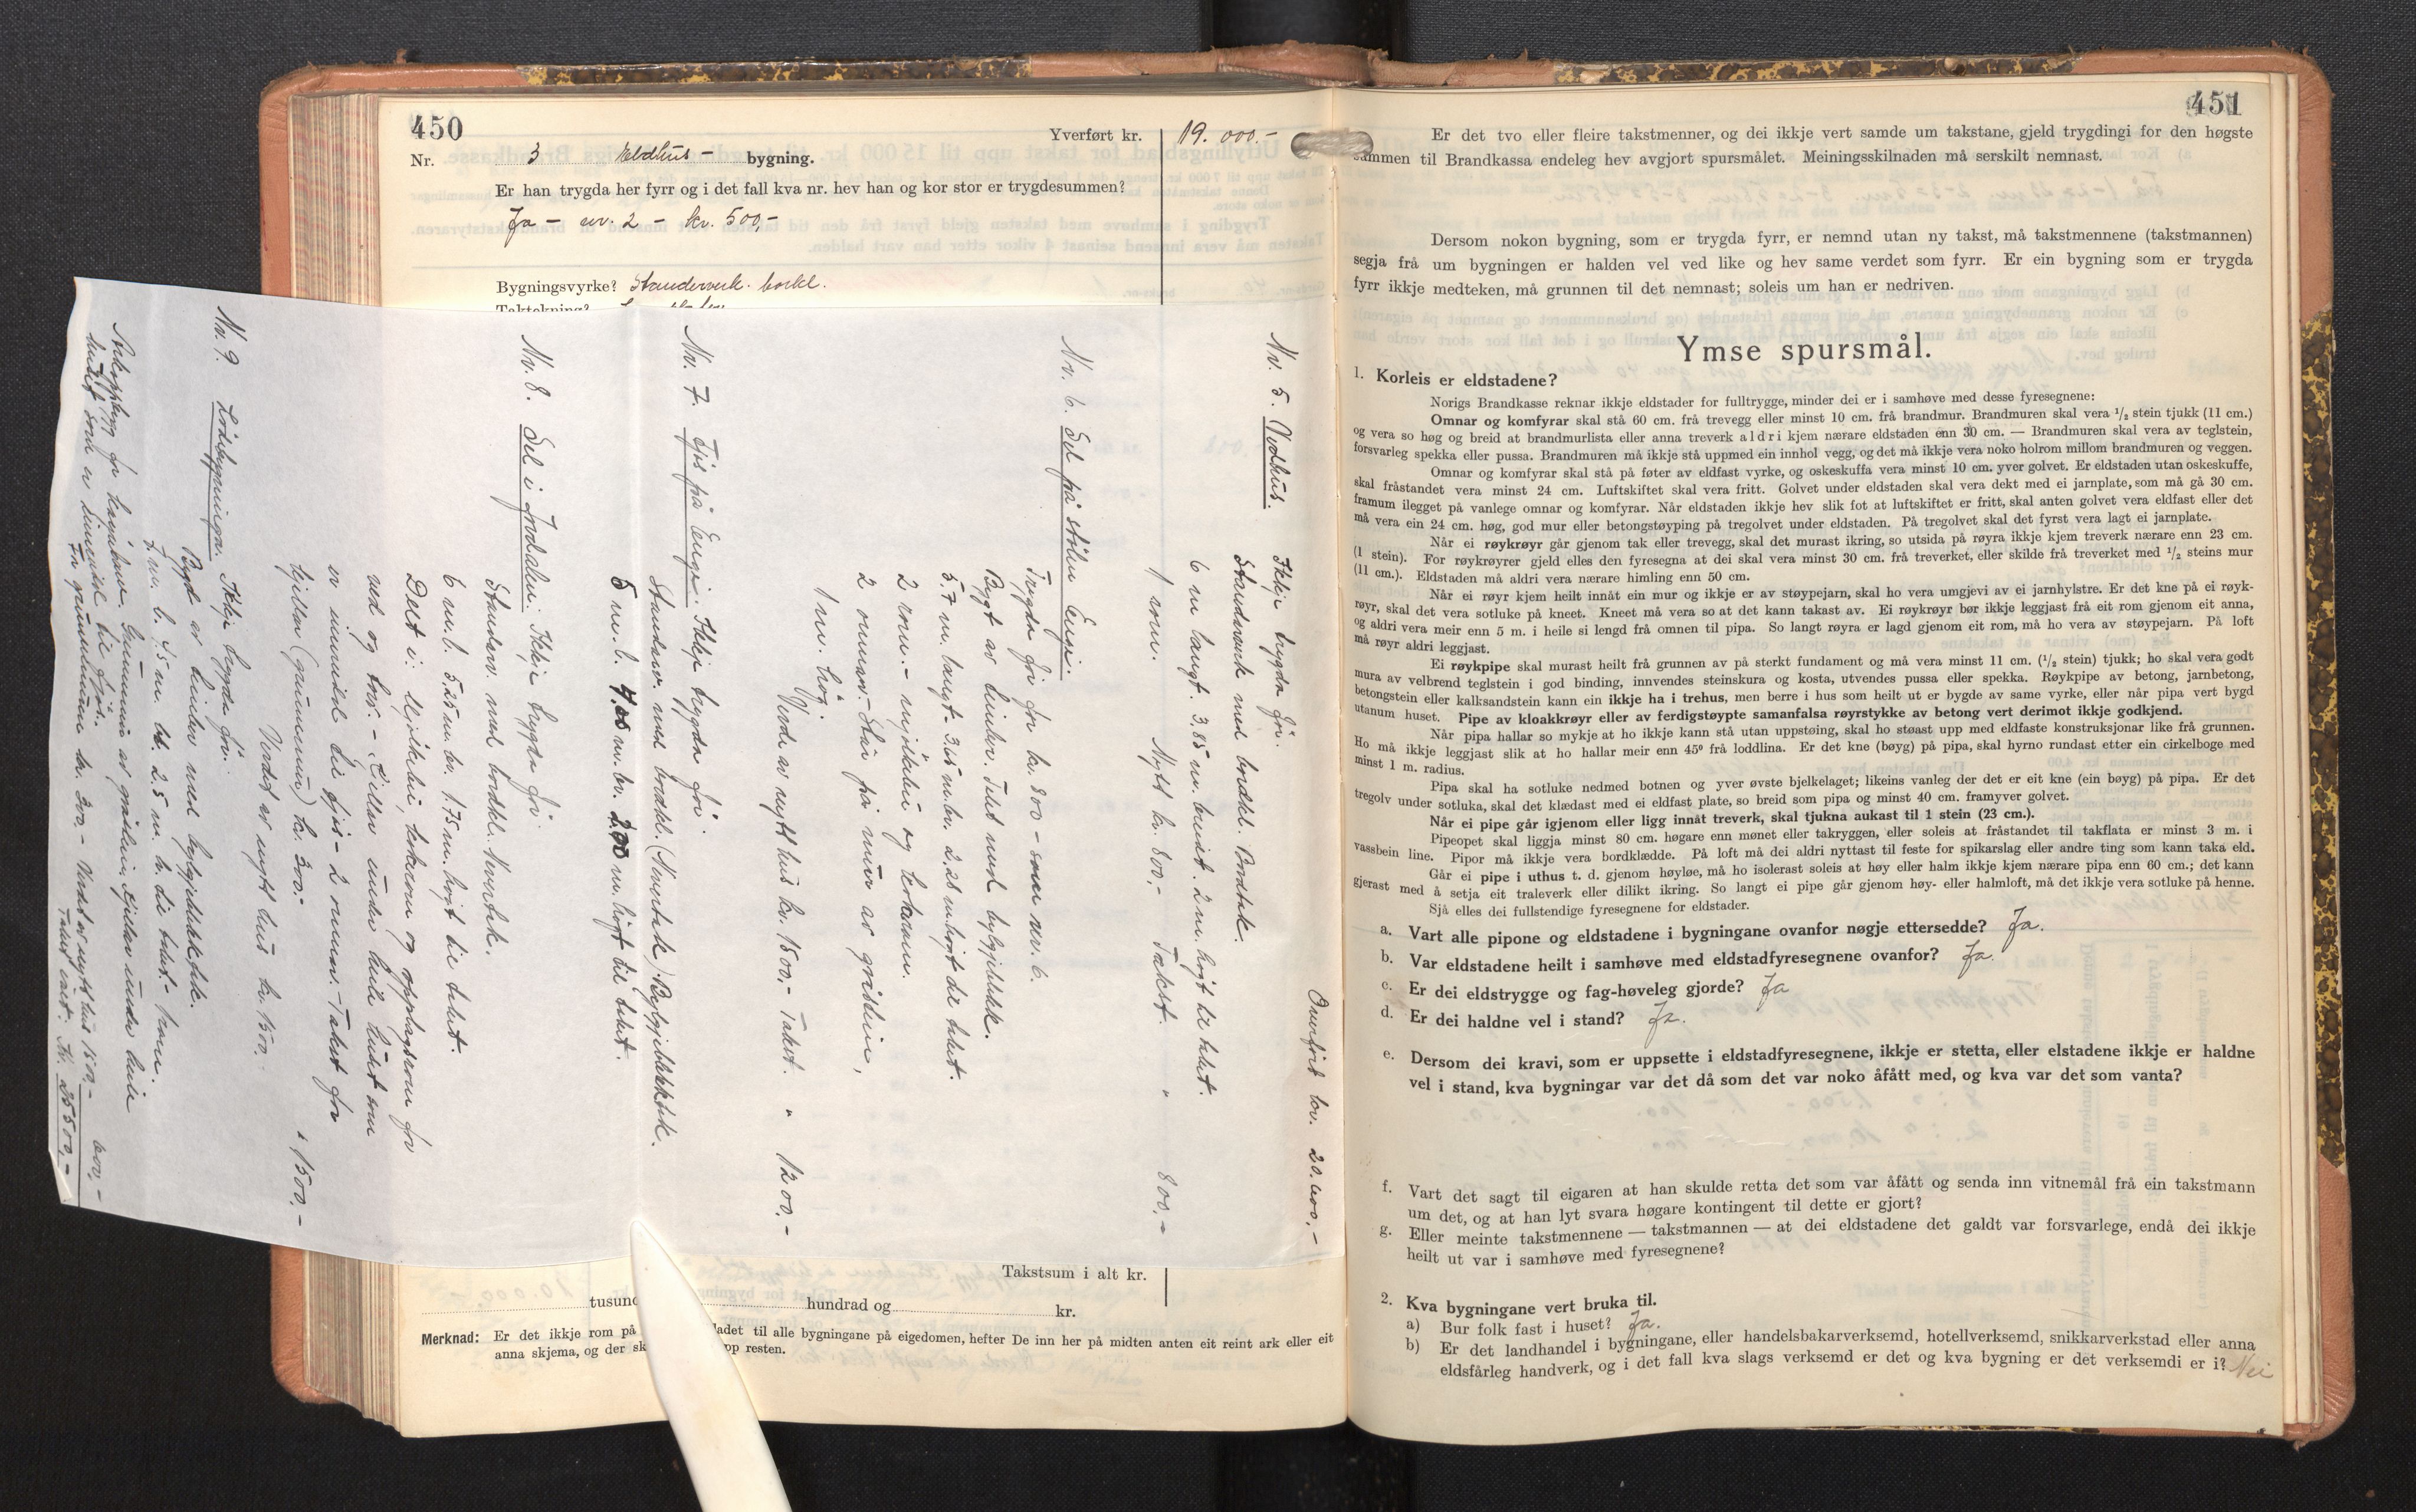 450
Yverført kr. 19.000.-
Nr. 3 Eldhus- bygning.
Er han trygda her fyrr og i det fall kva nr. hev han og kor stor er trygdesummen?
Ja - nr. 2 - kr. 500,-
Bygningsvyrke? Standerverk. bordkl.
Taktekning?
Overført kr. 20.400.-
Nr. 5. Vedhus. Ikkje trygda før.
Standerverk med bordkl. Bordtak.
6 m langt. 3,85 m. breidt. 2 m. høgt til tekut.
1 rom. Nytt kr. 800,- Takst. " 800.-
Nr. 6. Sel på stölen Eengi.
Trygda før for kr. 800 - som nr. 6.
Bygt av timber. Tekt med bylgjeblekk.
5,7 m. langt - 3,65 m. br. 2,28 m. høgt til tekut.
2 rom. - mjölkebu og kokerom.
2 omnar. - Står på mur av gråstein,
1 m. høg.
Verde av nytt hus kr. 1500,- Takst. " 1200,-
Nr. 7. Fjös på Eengi. Ikkje trygda før.
Standerv. med bordkl. (Novertak) Bylgjeblekktak.
5 m. l. 4,00 m. br. 2,00 m. høgt til tekut.
Nr. 8. Sel i Frodalen: Ikkje trygda før.
Standerv. med bordkl. Novertak.
6 m. l. 5,25 m. br. 1.75 m. høgt til tekut.
Det i: Mjölkebu, kokerom og opplagsrom for
ved og torv. - Kjellar under heile huset som
er innreidd til fjös - 2 rommer. - Takst for
kjellar (grunnmur) kr. 300.-
Verdet av nytt hus kr. 1500. " 1500.-
Nr. 9. Lödebygningen. Ikkje trygda før.
Bygd av timber med bylgjeblekktak.
7 m. l. 4,5 m. br. 2,5 m. h. til tekut. - 1 rom.
Attåtbygg for
Grunnmur av gråstein. Kjellar under heile
huset som er innreidd til fjös.
For grunnmuren kr. 300.- Verdet av nytt hus 1500.-
Takst i alt: Kr. 25500.-
Takstsum i alt kr.
tusund hundrad og kr.
Merknad: Er det ikkje rom på ladet til alle bygningane på eigedomen, hefter De inn her på midten anten eit reint ark eller eit
anna skjema, og der sk pp resten.
451
Er det tvo eller fleire takstmenner, og dei ikkje vert samde um takstane, gjeld trygdingi for den høgste
summen til Brandkassa endeleg hev avgjort spursmålet. Meiningsskilnaden må serskilt nemnast.
Dersom nokon bygning, som er trygda fyrr, er nemnd utan ny takst, må takstmennene (takstmannen)
segja frå um bygningen er halden vel ved like og hev same verdet som fyrr. Er ein bygning som er trygda
fyrr ikkje medteken, må grunnen til det nemnast; soleis um han er nedriven.
Ymse spursmål.
1. Korleis er eldstadene?
Norigs Brandkasse reknar ikkje eldstader for fulltrygge, minder dei er i samhøve med desse fyresegnene:
Omnar og komfyrar skal stå 60 cm. frå trevegg eller minst 10 cm. frå brandmur. Brandmuren skal vera 1/2 stein tjukk (11 cm.)
og vera so høg og breid at brandmurlista eller anna treverk aldri kjem nærare eldstaden enn 30 cm. — Brandmuren skal vera av teglstein,
forsvarleg spekka eller pussa. Brandmuren må ikkje stå uppmed ein innhol vegg, og det må ikkje vera noko holrom millom brandmuren og veggen.
Omnar og komfyrar skal stå på føter av eldfast vyrke, og oskeskuffa vera minst 10 cm. yver golvet. Er eldstaden utan oskeskuffe,
skal fråstandet vera minst 24 cm. Luftskiftet skal vera fritt. Golvet under eldstaden skal vera dekt med ei jarnplate, som må gå 30 cm.
framum ilegget på vanlege omnar og komfyrar. Når eldstaden ikkje hev slik fot at luftskiftet er fritt, skal anten golvet vera eldfast eller det
må vera ein 24 cm. høg, god mur eller betongstøyping på tregolvet under eldstaden. På tregolvet skal det fyrst vera lagt ei jarnplate.
Når ei røykrøyr går gjenom tak eller trevegg, skal det murast ikring, so utsida på røyra ikkje kjem treverk nærare enn 23 cm.
(1 stein). For røykrøyrer gjeld elles den fyresegna at dei skal vera minst 30 cm. frå treverket, eller skilde frå treverket med 1/2 steins mur
(11 cm.). Eldstaden må aldri vera nærare himling enn 50 cm.
Når ei røyr kjem heilt innåt ein mur og ikkje er av støypejarn, skal ho vera umgjevi av ei jarnhylstre. Er det kne på ei røyk-
røyr, skal det vera sotluke på kneet. Kneet må vera so at det kann takast av. Ei røykrøyr bør ikkje leggjast frå eit rom gjenom eit anna,
og aldri vera meir enn 5 m. i heile si lengd frå omnen til pipa. So langt røyra er lagd gjenom eit rom, må ho vera av støypejarn. På loft
må røyr aldri leggjast.
Ei røykpipe skal murast heilt frå grunnen av på sterkt fundament og må vera minst 11 cm. (1/2 stein) tjukk; ho skal vera godt
mura av velbrend teglstein i god binding, innvendes steinskura og kosta, utvendes pussa eller spekka. Røykpipe av betong, jarnbetong,
betongstein eller kalksandstein kann ein ikkje ha i trehus, men berre i hus som heilt ut er bygde av same vyrke, eller når pipa vert bygd
utanum huset. Pipe av kloakkrøyr eller av ferdigstøypte samanfalsa røyrstykke av betong vert derimot ikkje godkjend.
Når pipa hallar so mykje at ho ikkje kann stå utan uppstøing, skal ho støast upp med eldfaste konstruksjonar like frå grunnen.
Ho må ikkje leggjast slik at ho hallar meir enn 45° frå loddlina. Er det kne (bøyg) på pipa, skal hyrno rundast etter ein cirkelboge med
minst 1 m. radius.
Pipa skal ha sotluke nedmed botnen og yver øvste bjelkelaget; likeins vanleg der det er eit kne (ein bøyg) på pipa. Er det
tregolv under sotluka, skal det klædast med ei eldfast plate, so breid som pipa og minst 40 cm. framyver golvet.
Når ei pipe går igjenom eller ligg innåt treverk, skal tjukna aukast til 1 stein (23 cm.).
Pipeopet skal liggja minst 80 cm. høgare enn mønet eller takryggen, eller soleis at fråstandet til takflata er minst 3 m. i
vassbein line. Pipor må ikkje vera bordklædde. På loft må dei aldri nyttast til feste for spikarslag eller andre ting som kann taka eld.
Går ei pipe i uthus t. d. gjenom høyløe, må ho isolerast soleis at høy eller halm ikkje kjem nærare pipa enn 60 cm.; det kann
gjerast med å setja eit traleverk eller dilikt ikring. So langt ei pipe går gjenom høy- eller halmloft, må det ikkje vera sotluke på henne.
Sjå elles dei fullstendige fyresegnene for eldstader.
a. Vart alle pipone og eldstadene i bygningane ovanfor nøgje ettersedde? Ja.
b. Var eldstadene heilt i samhøve med eldstadfyresegnene ovanfor? Ja.
c. Er dei eldstrygge og fag-høveleg gjorde? Ja
d. Er dei haldne vel i stand? Ja.
e. Dersom dei kravi, som er uppsette i eldstadfyresegnene, ikkje er stetta, eller elstadene ikkje er haldne
vel i stand, kva bygningar var det då som det var noko åfått med, og kva var det som vanta?
f. Vart det sagt til eigaren at han skulde retta det som var åfått og senda inn vitnemål frå ein takstmann
um det, og at han lyt svara høgare kontingent til dette er gjort?
g. Eller meinte takstmennene — takstmannen — at dei eldstadene det galdt var forsvarlege, endå dei ikkje
heilt ut var i samhøve med fyresegnene?
2. Kva bygningane vert bruka til.
a) Bur folk fast i huset? Ja.
b) Er det landhandel i bygningane, eller handelsbakarverksemd, hotellverksemd, snikkarverkstad eller anna
eldsfårleg handverk, og i det fall kva slags verksemd er det og kva bygning er det verksemdi er i? Nei